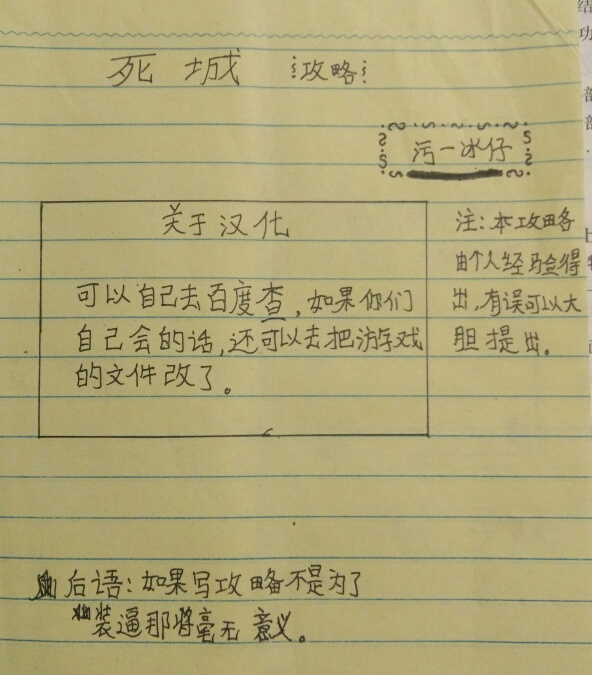 死城 攻略
污一冰仔
关于汉化
可以自己去百度查,如果你们
自己会的话,还可以去把游戏
的文件改了。
注:本攻略
由个人经验得
出,有误可以大
胆提出。
后语:如果写攻略不是为了
装逼那将毫无意义。